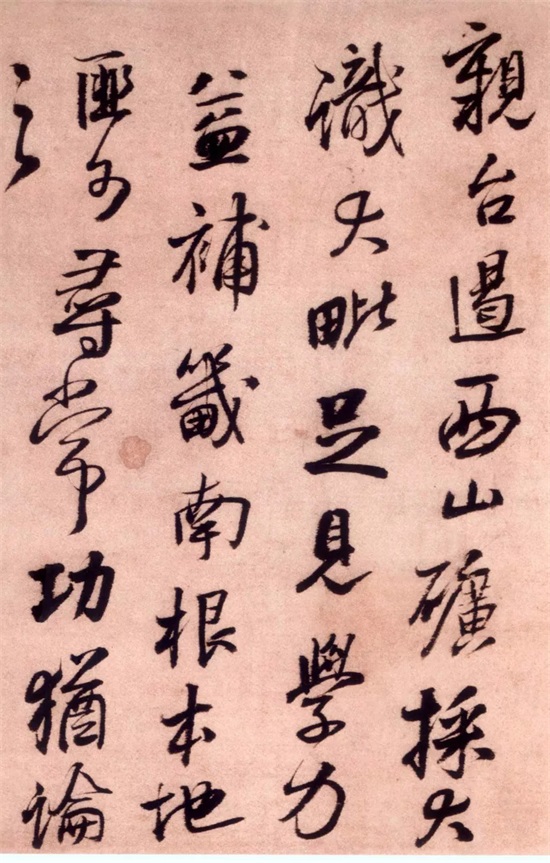 親台遏西山礦採大
識大毗足見學力
益補畿南根本地
匪可尋常功猶論
之